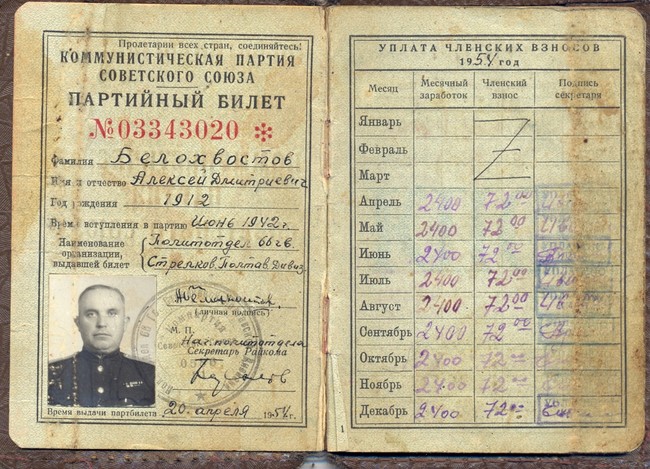 Пролетарии всех стран, соединяйтесь!
КОММУНИСТИЧЕСКАЯ ПАРТИЯ
СОВЕТСКОГО СОЮЗА
ПАРТИЙНЫЙ БИЛЕТ
№03343020 *
Фамилия Белохвостов
Имя и отчество Алексей Дмитриевич
Год рождения 1912
Время вступления в партию Июнь 1942 г.
Наименование организации, выдавшей билет
Политотдел 66 гв.
Стрелков. Полтав. Дивиз
(личная подпись)
М. П.
Нач. политотдела
Секретарь Райкома
Время выдачи партбилета 20 апреля 1954 г.
УПЛАТА ЧЛЕНСКИХ ВЗНОСОВ
1954 год
Месяц Месячный заработок Членский взнос Подпись секретаря
Январь
Февраль
Март
Апрель 2400 72 00
Май 2400 72 00
Июнь 2400 72 00
Июль 2400 72 00
Август 2400 72 00
Сентябрь 2400 72 00
Октябрь 2400 72 00
Ноябрь 2400 72 00
Декабрь 2400 72 00
1